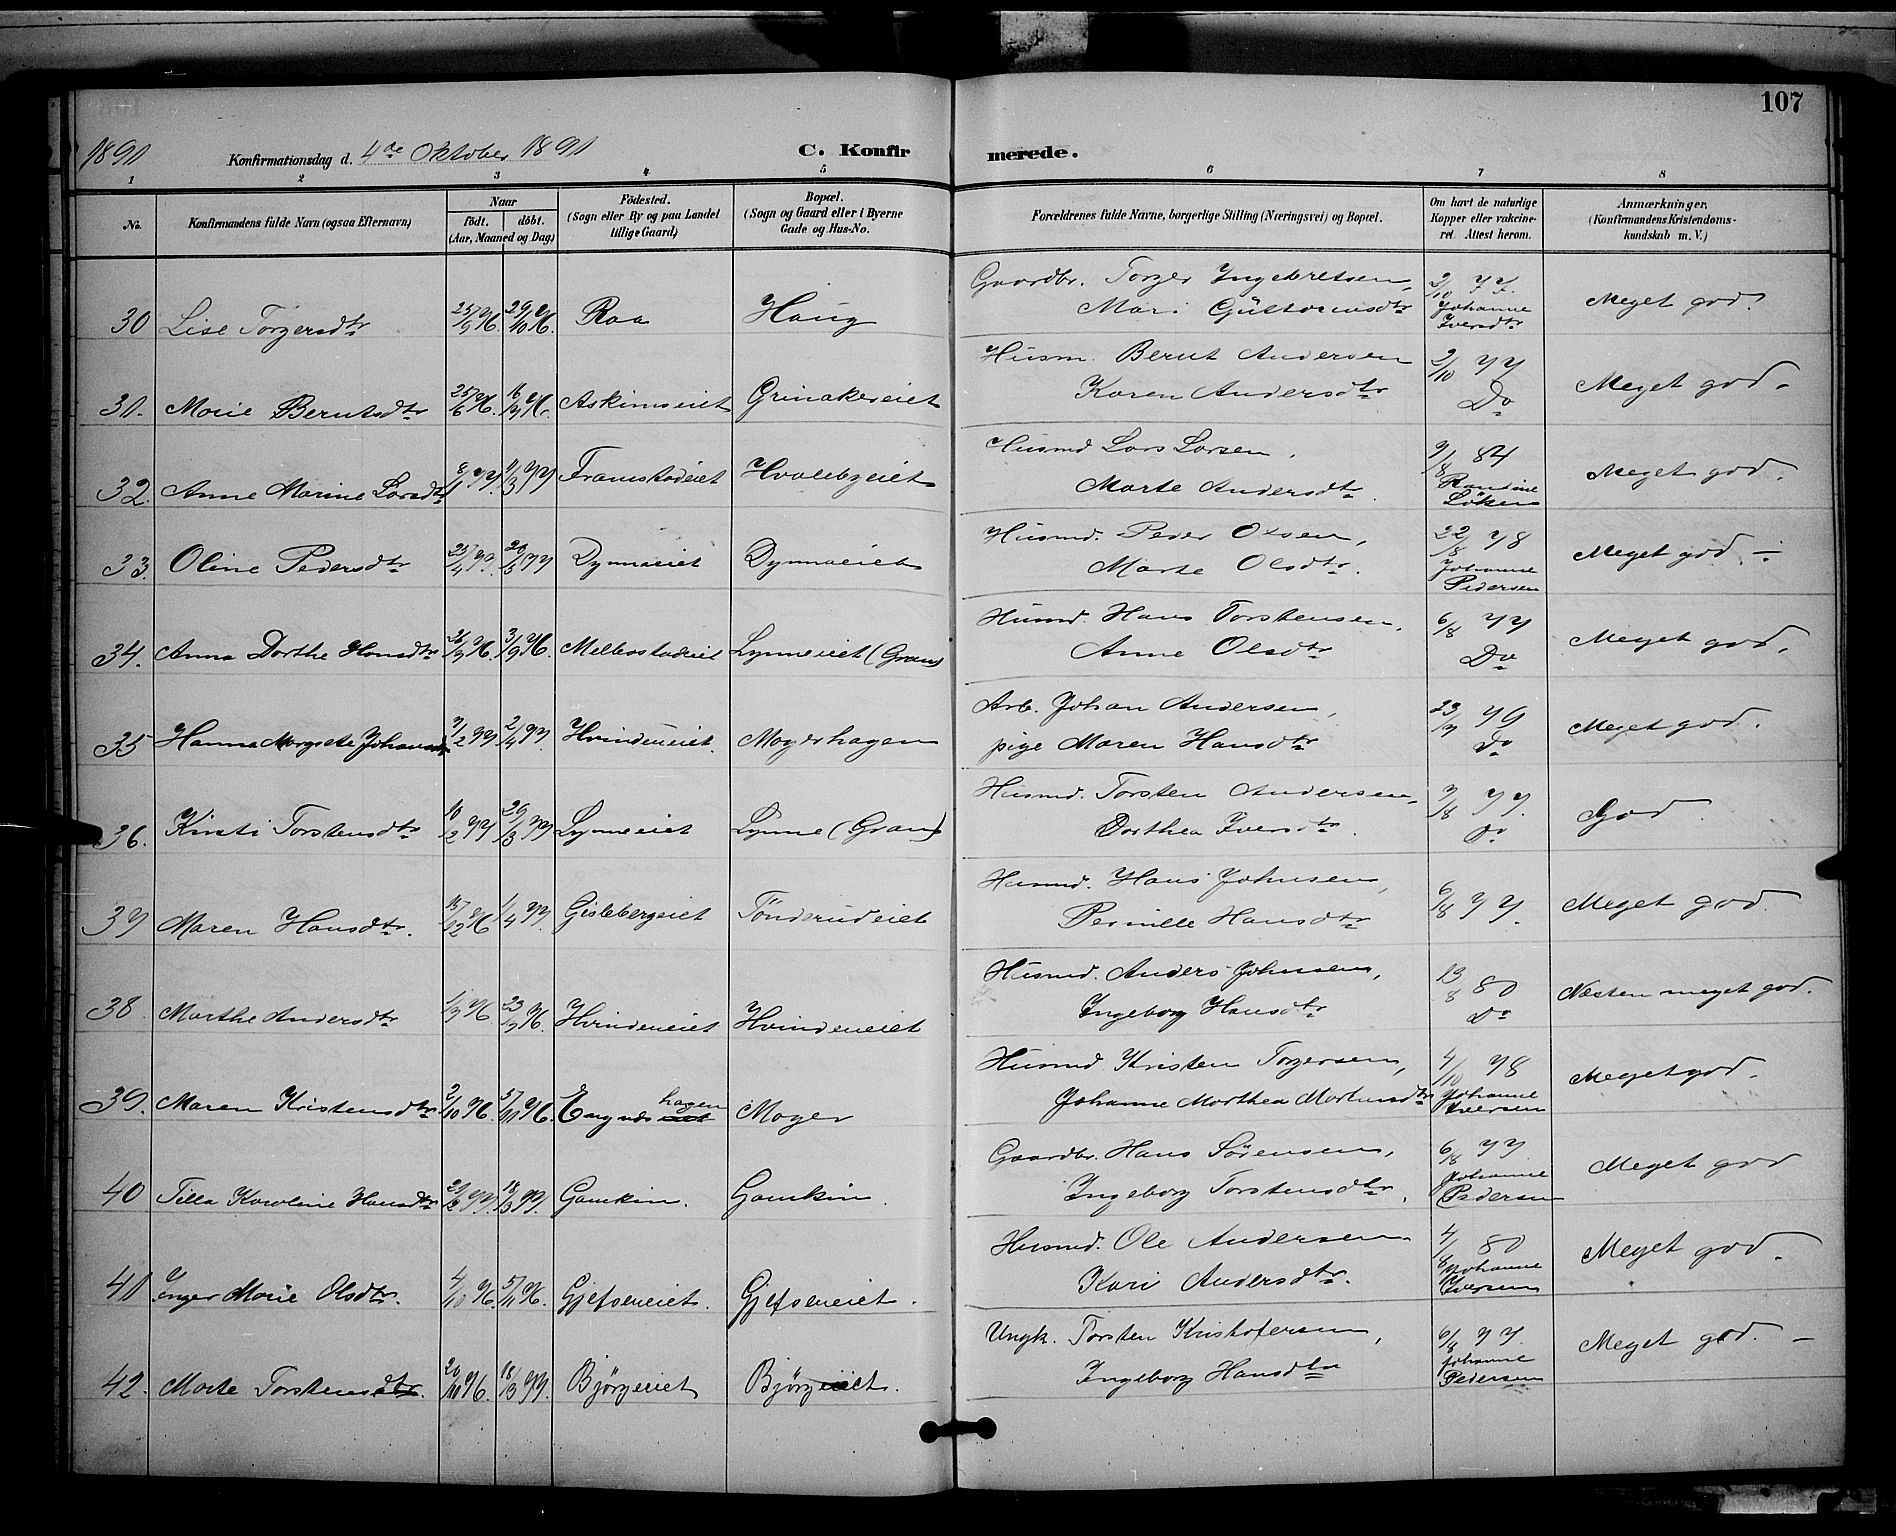 107
1891 Konfirmationsdag d. 4de Oktober 1891 C. Konfirmerede.
1 2 3 4 5 6 7 8
No. Konfirmandens fulde Navn (ogsaa Efternavn) Naar født. døbt. (Aar, Maaned og Dag) Fødested. (Sogn eller By og paa Landet tillige Gaard) Bopæl. (Sogn og Gaard eller i Byerne Gade og Hus-No. Forældrenes fulde Navne, borgerlige Stilling (Næringsvei) og Bopæl. Om havt de naturlige Kopper eller vakcineret. Attest herom. Anmærkninger. (Konfirmandens Kristendomskundskab m. V.)
30 Lise Torgersdtr 25/9 76. 29/10 76. Raa Haug Gaardbr. Torger Ingebretsen, Mari Guttormsdtr 2/10 77. Johanne Iversdtr Meget god.
31. Marie Berntsdtr 25/6 76. 16/7 76. Askimseiet Grinakereiet Husm. Bernt Andersen Karen Andersdtr 2/10 77 Do Meget god.
32. Anne Marine Larsdtr 8/1 77. 11/3 77 Framstadeiet Hvalebyeiet Husmd Lars Larsen, Marte Andersdtr. 7/8 84 Løken Meget god.
33. Oline Pedersdtr 25/4 77. 20/5 77 Dynnaeiet Dynnaeiet Husmd. Peder Olsen, Marte Olsdtr. 22/8 78 Johanne Pedersen Meget god ÷
34. Anna Dorthe Hansdtr 26/7 76. 3/9 76. Melbostadeiet Lynneeiet (Gran) Husmd. Hans Torstensen, Anne Olsdtr 6/8 77 Do Meget god.
35 Hanna Margrete Johansdtr 7/2 77 2/4 77. Hvindeneiet. Mogerhagen Arb. Johan Andersen, pige Maren Hansdtr 23/7 79 Do Meget god.
36. Kirsti Torstensdtr 10/2 77 29/3 77 Lynneeiet Lynne (Gran) Husmd. Torsten Andersen, Dorthea Iversdtr. 7/8 77. Do God.
37 Maren Hansdtr. 15/12 76 1/4 77. Gislebergeiet Tønderudeiet Husmd. Hans Johnsen, Pernille Hansdtr 6/8 77. Meget god.
38. Marthe Andersdtr 1/7 76 23/7 76. Hvindeneiet Hvindeneiet Husmd. Anders Johnsen, Ingeborg Hansdtr 13/8 80 Do Næsten meget god.
39. Maren Kristensdtr 2/10 76. 5/11 76. hagen Moger Husmd Kristen Torgersen, Johanne Marthea Mortensdtr 4/10 78 Johanne Iversen Meget god.
40 Tilla Karoline Hansdtr 29/2 77. 18/3 77. Gamkin. Gamkin. Gaardbr. Hans Sørensen, Ingeborg Torstensdtr. 6/8 77 Johanne Pedersen Meget god
41 Inger Marie Olsdtr. 4/10 76. 5/11 76. Gjefseneiet. Gjefseneiet. Husmd. Ole Andersen Kari Andersdtr. 4/8 80 Johanne Iversen Meget god.
42. Marte Torstensdtr. 20/10 76. 18/3 77. Bjørgeeiet Bjørgeeiet. Ungk. Torsten Kristofersen, Ingeborg Hansdtr 6/8 77. Johanne Pedersen Meget god. –